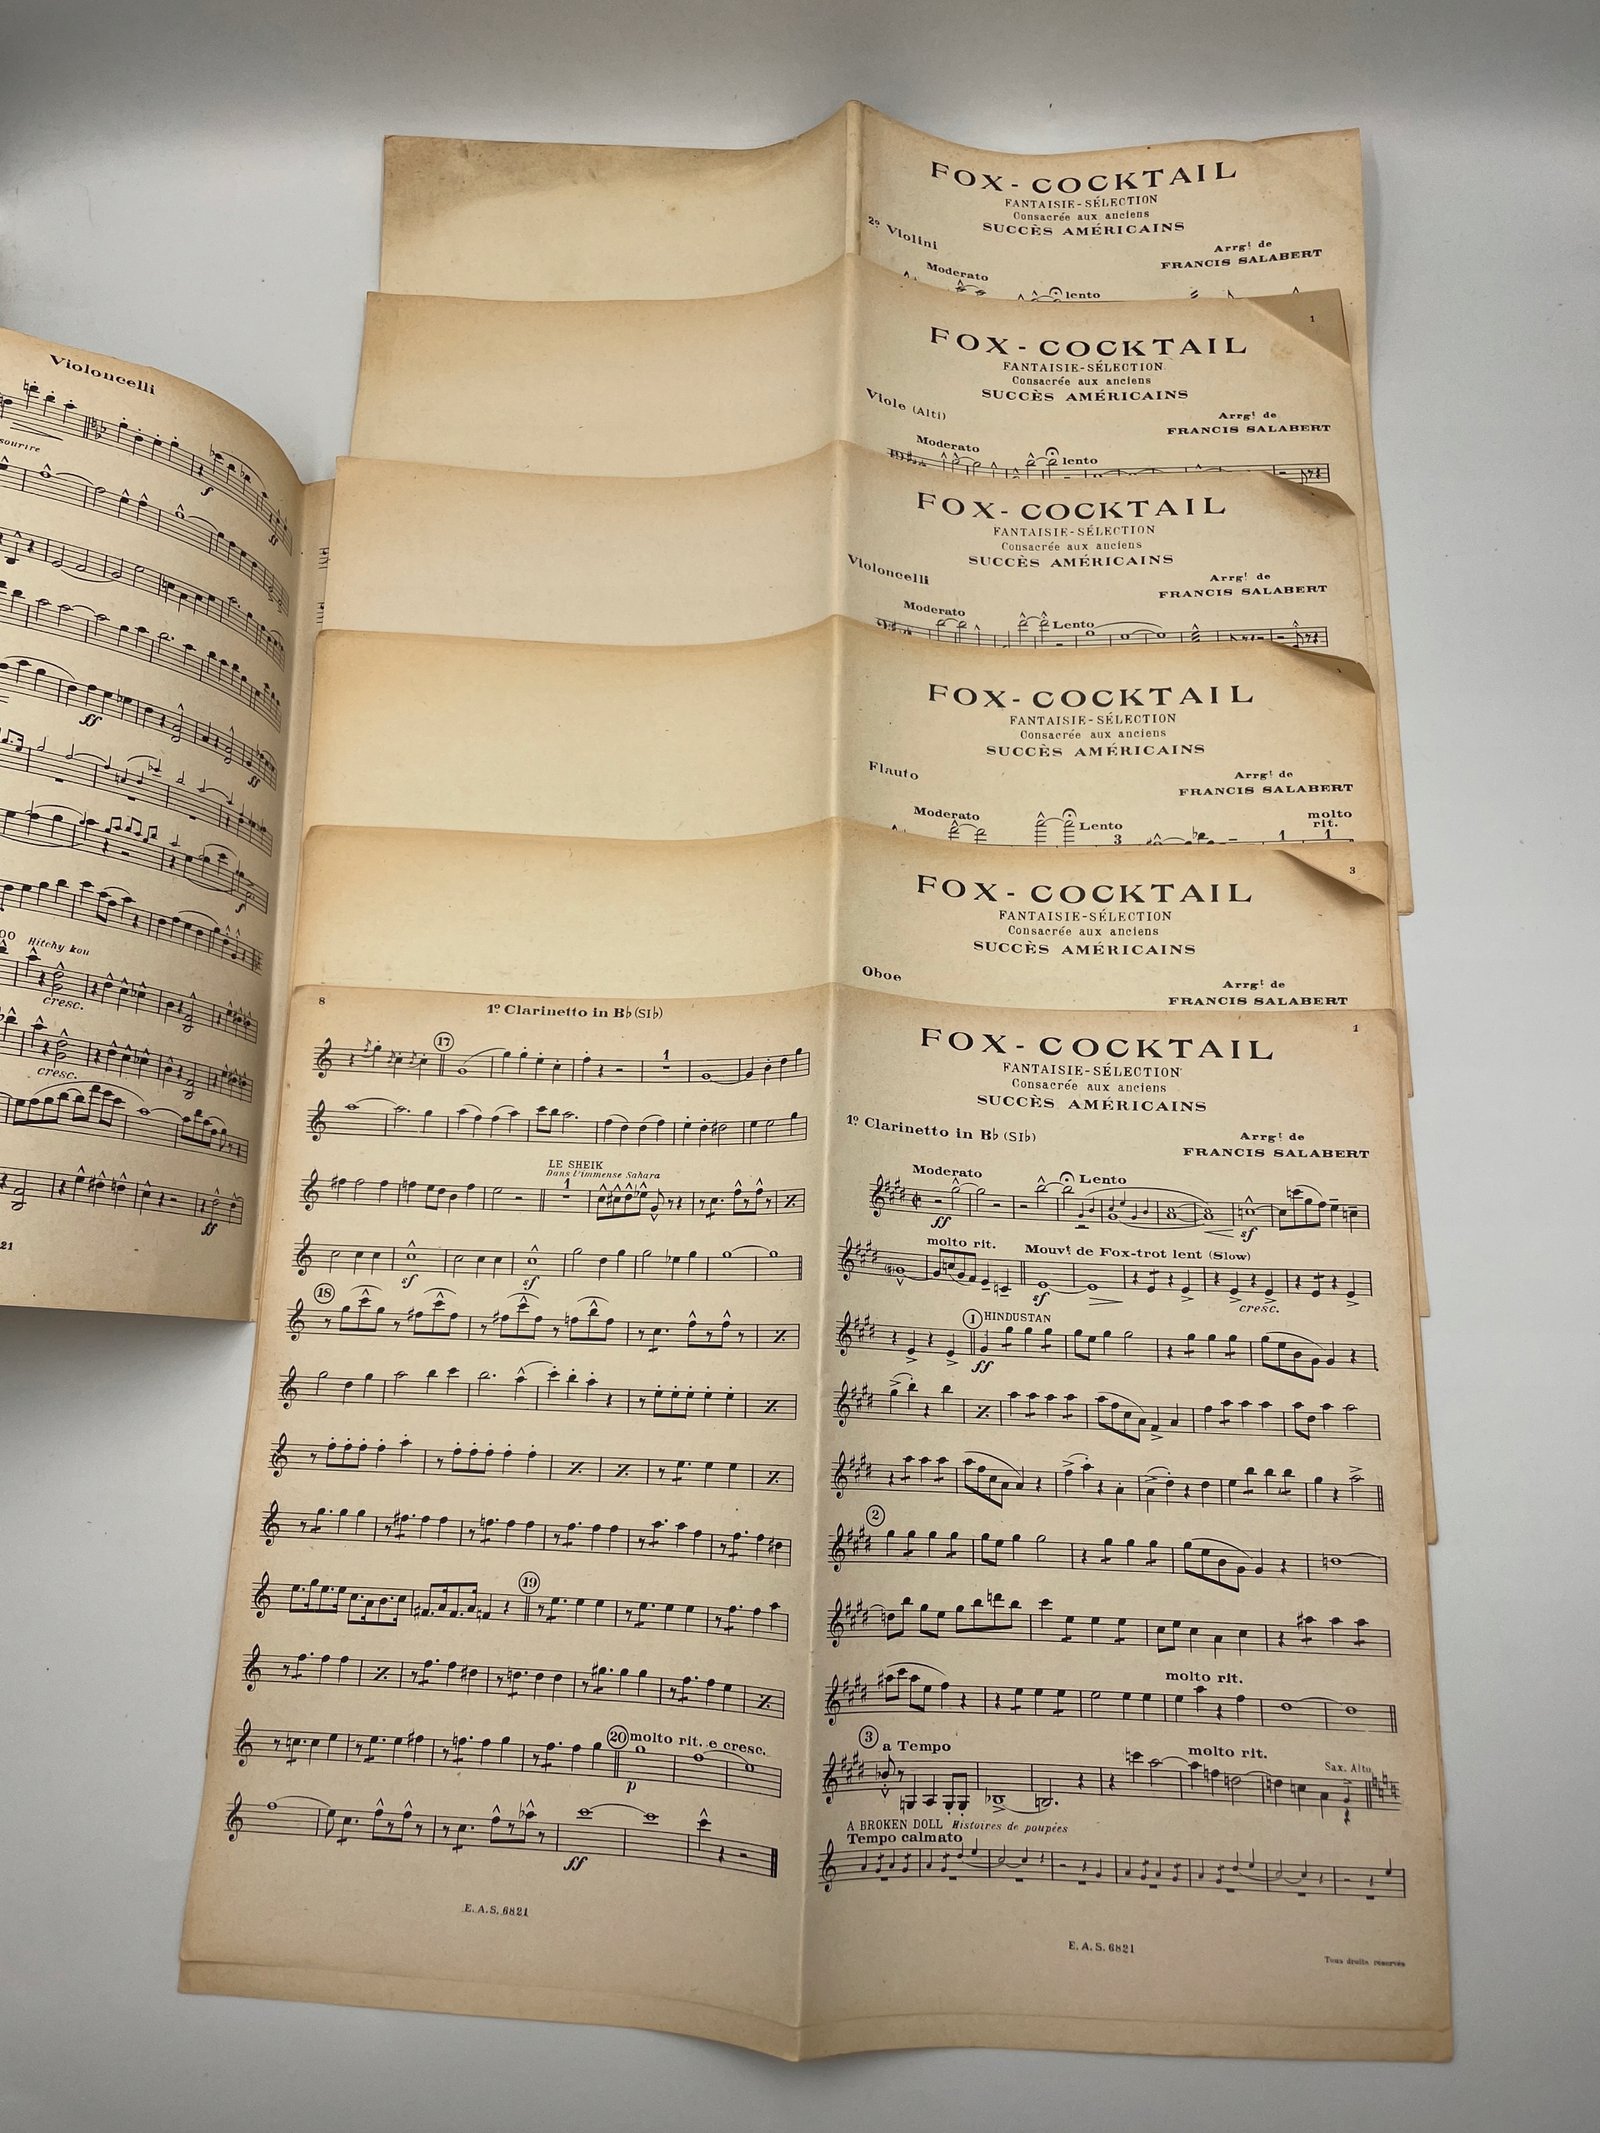 FOX - COCKTAIL
FANTAISIE - SÉLECTION
Consacrée aux anciens
SUCCÈS AMÉRICAINS
2º Violini
Arrgt de
FRANCIS SALABERT
Moderato
lento
1
FOX - COCKTAIL
FANTAISIE - SÉLECTION
Consacrée aux anciens
SUCCÈS AMÉRICAINS
Viole (Alti)
Arrgt de
FRANCIS SALABERT
Moderato
lento
FOX - COCKTAIL
FANTAISIE - SÉLECTION
Consacrée aux anciens
SUCCÈS AMÉRICAINS
Violoncelli
Arrgt de
FRANCIS SALABERT
Moderato
Lento
FOX - COCKTAIL
FANTAISIE - SÉLECTION
Consacrée aux anciens
SUCCÈS AMÉRICAINS
Flauto
Arrgt de
FRANCIS SALABERT
Moderato
Lento
3
1
1
molto
rit.
3
FOX - COCKTAIL
FANTAISIE - SÉLECTION
Consacrée aux anciens
SUCCÈS AMÉRICAINS
Oboe
Arrgt de
FRANCIS SALABERT
Violoncelli
sourire
f
ff
ff
ff
f
OO Hitchy kou
cresc.
cresc.
ff
21
8
1º Clarinetto in B♭ (SI♭)
17
1
LE SHEIK
Dans l'immense Sahara
1
sf
sf
18
19
20 molto rit. e cresc.
p
ff
E. A. S. 6821
1
FOX - COCKTAIL
FANTAISIE - SÉLECTION
Consacrée aux anciens
SUCCÈS AMÉRICAINS
1º Clarinetto in B♭ (SI♭)
Arrgt de
FRANCIS SALABERT
Moderato
Lento
ff
sf
molto rit.
Mouvt de Fox-trot lent (Slow)
sf
cresc.
1 HINDUSTAN
ff
2
molto rit.
3 a Tempo
molto rit.
Sax. Alto
A BROKEN DOLL Histoires de poupées
Tempo calmato
E. A. S. 6821
Tous droits réservés